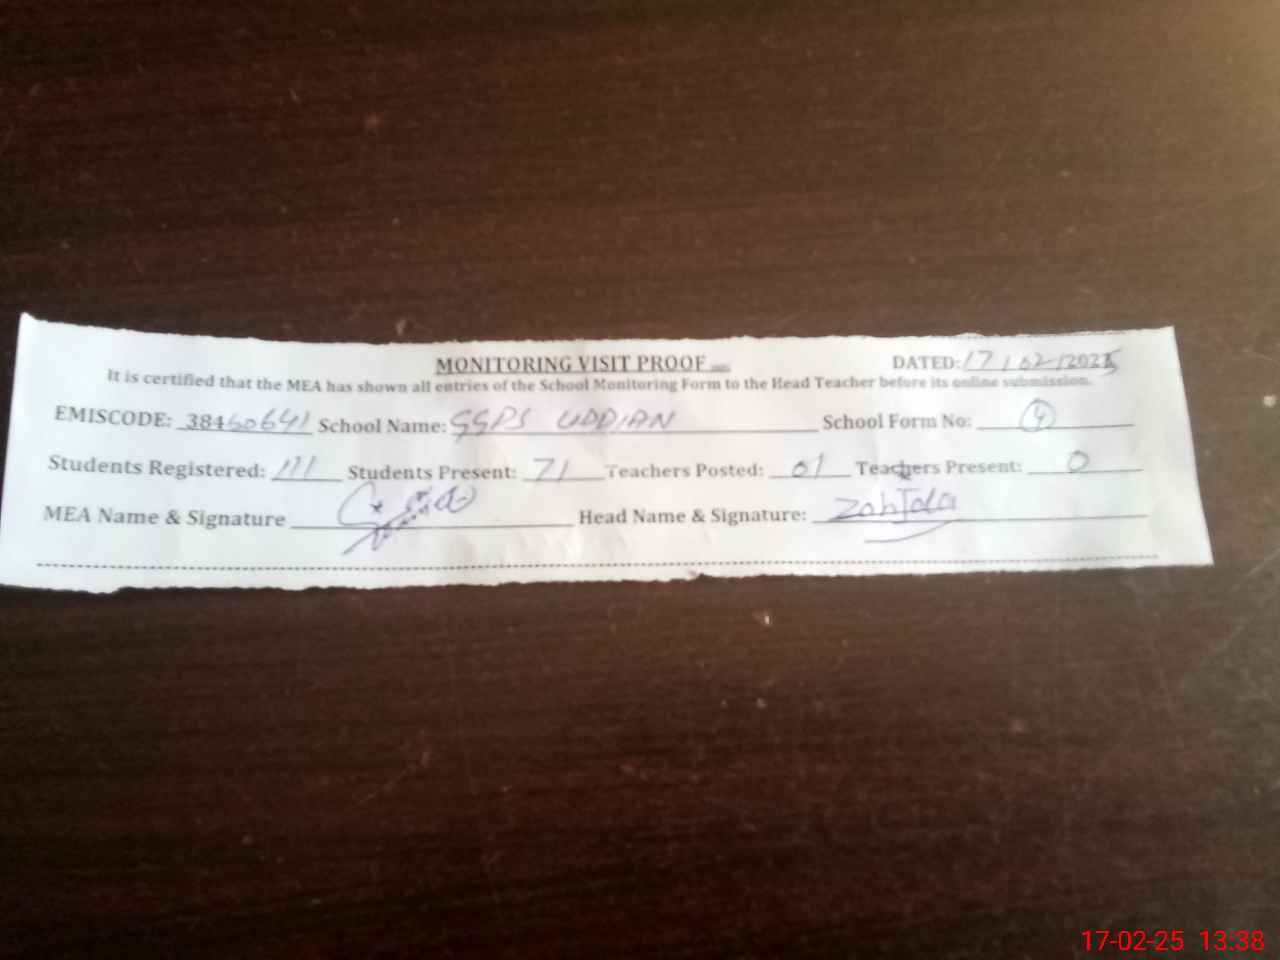 MONITORING VISIT PROOF DATED: 17/02/2025
It is certified that the MEA has shown all entries of the School Monitoring Form to the Head Teacher before its online submission.
EMISCODE: 38460641 School Name: GGPS UDDIAN School Form No: 4
Students Registered: 111 Students Present: 71 Teachers Posted: 01 Teachers Present: 0
MEA Name & Signature Head Name & Signature: ZahIda
17-02-25 13:38